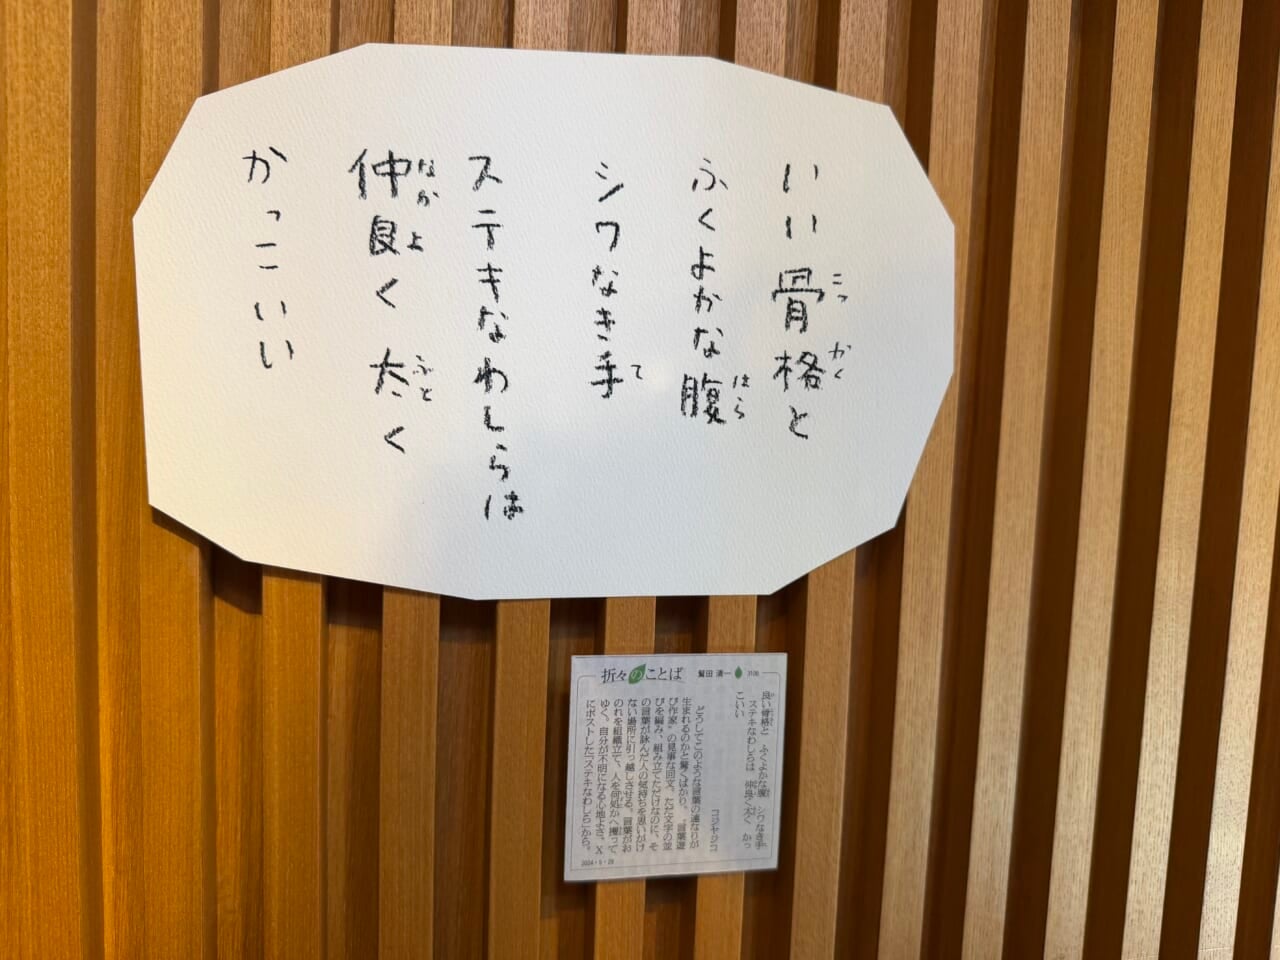 いい骨格と
こっかく
ふくよかな腹
はら
シワなき手
て
ステキなわしらは
仲良く太く
なかよ ふと
かっこいい
折々のことば
鷲田 清一
3100
良い骨格と ふくよかな腹 シワなき手
ステキなわしらは 仲良く太く かっ
こいい
コジヤジコ
どうしてこのような言葉の連なりが
生まれるのかと驚くばかり。“言葉遊
び作家”の見事な回文。ただ文字の並
びを編み、組み立てただけなのに、そ
の言葉が詠んだ人の気持ちを思いがけ
ない場所に引っ越しさせる。言葉がお
のれを組織立て、人を何処かへ攫って
ゆく。自分が不明になる心地よさ。X
にポストした「ステキなわしら」から。
2024・5・28